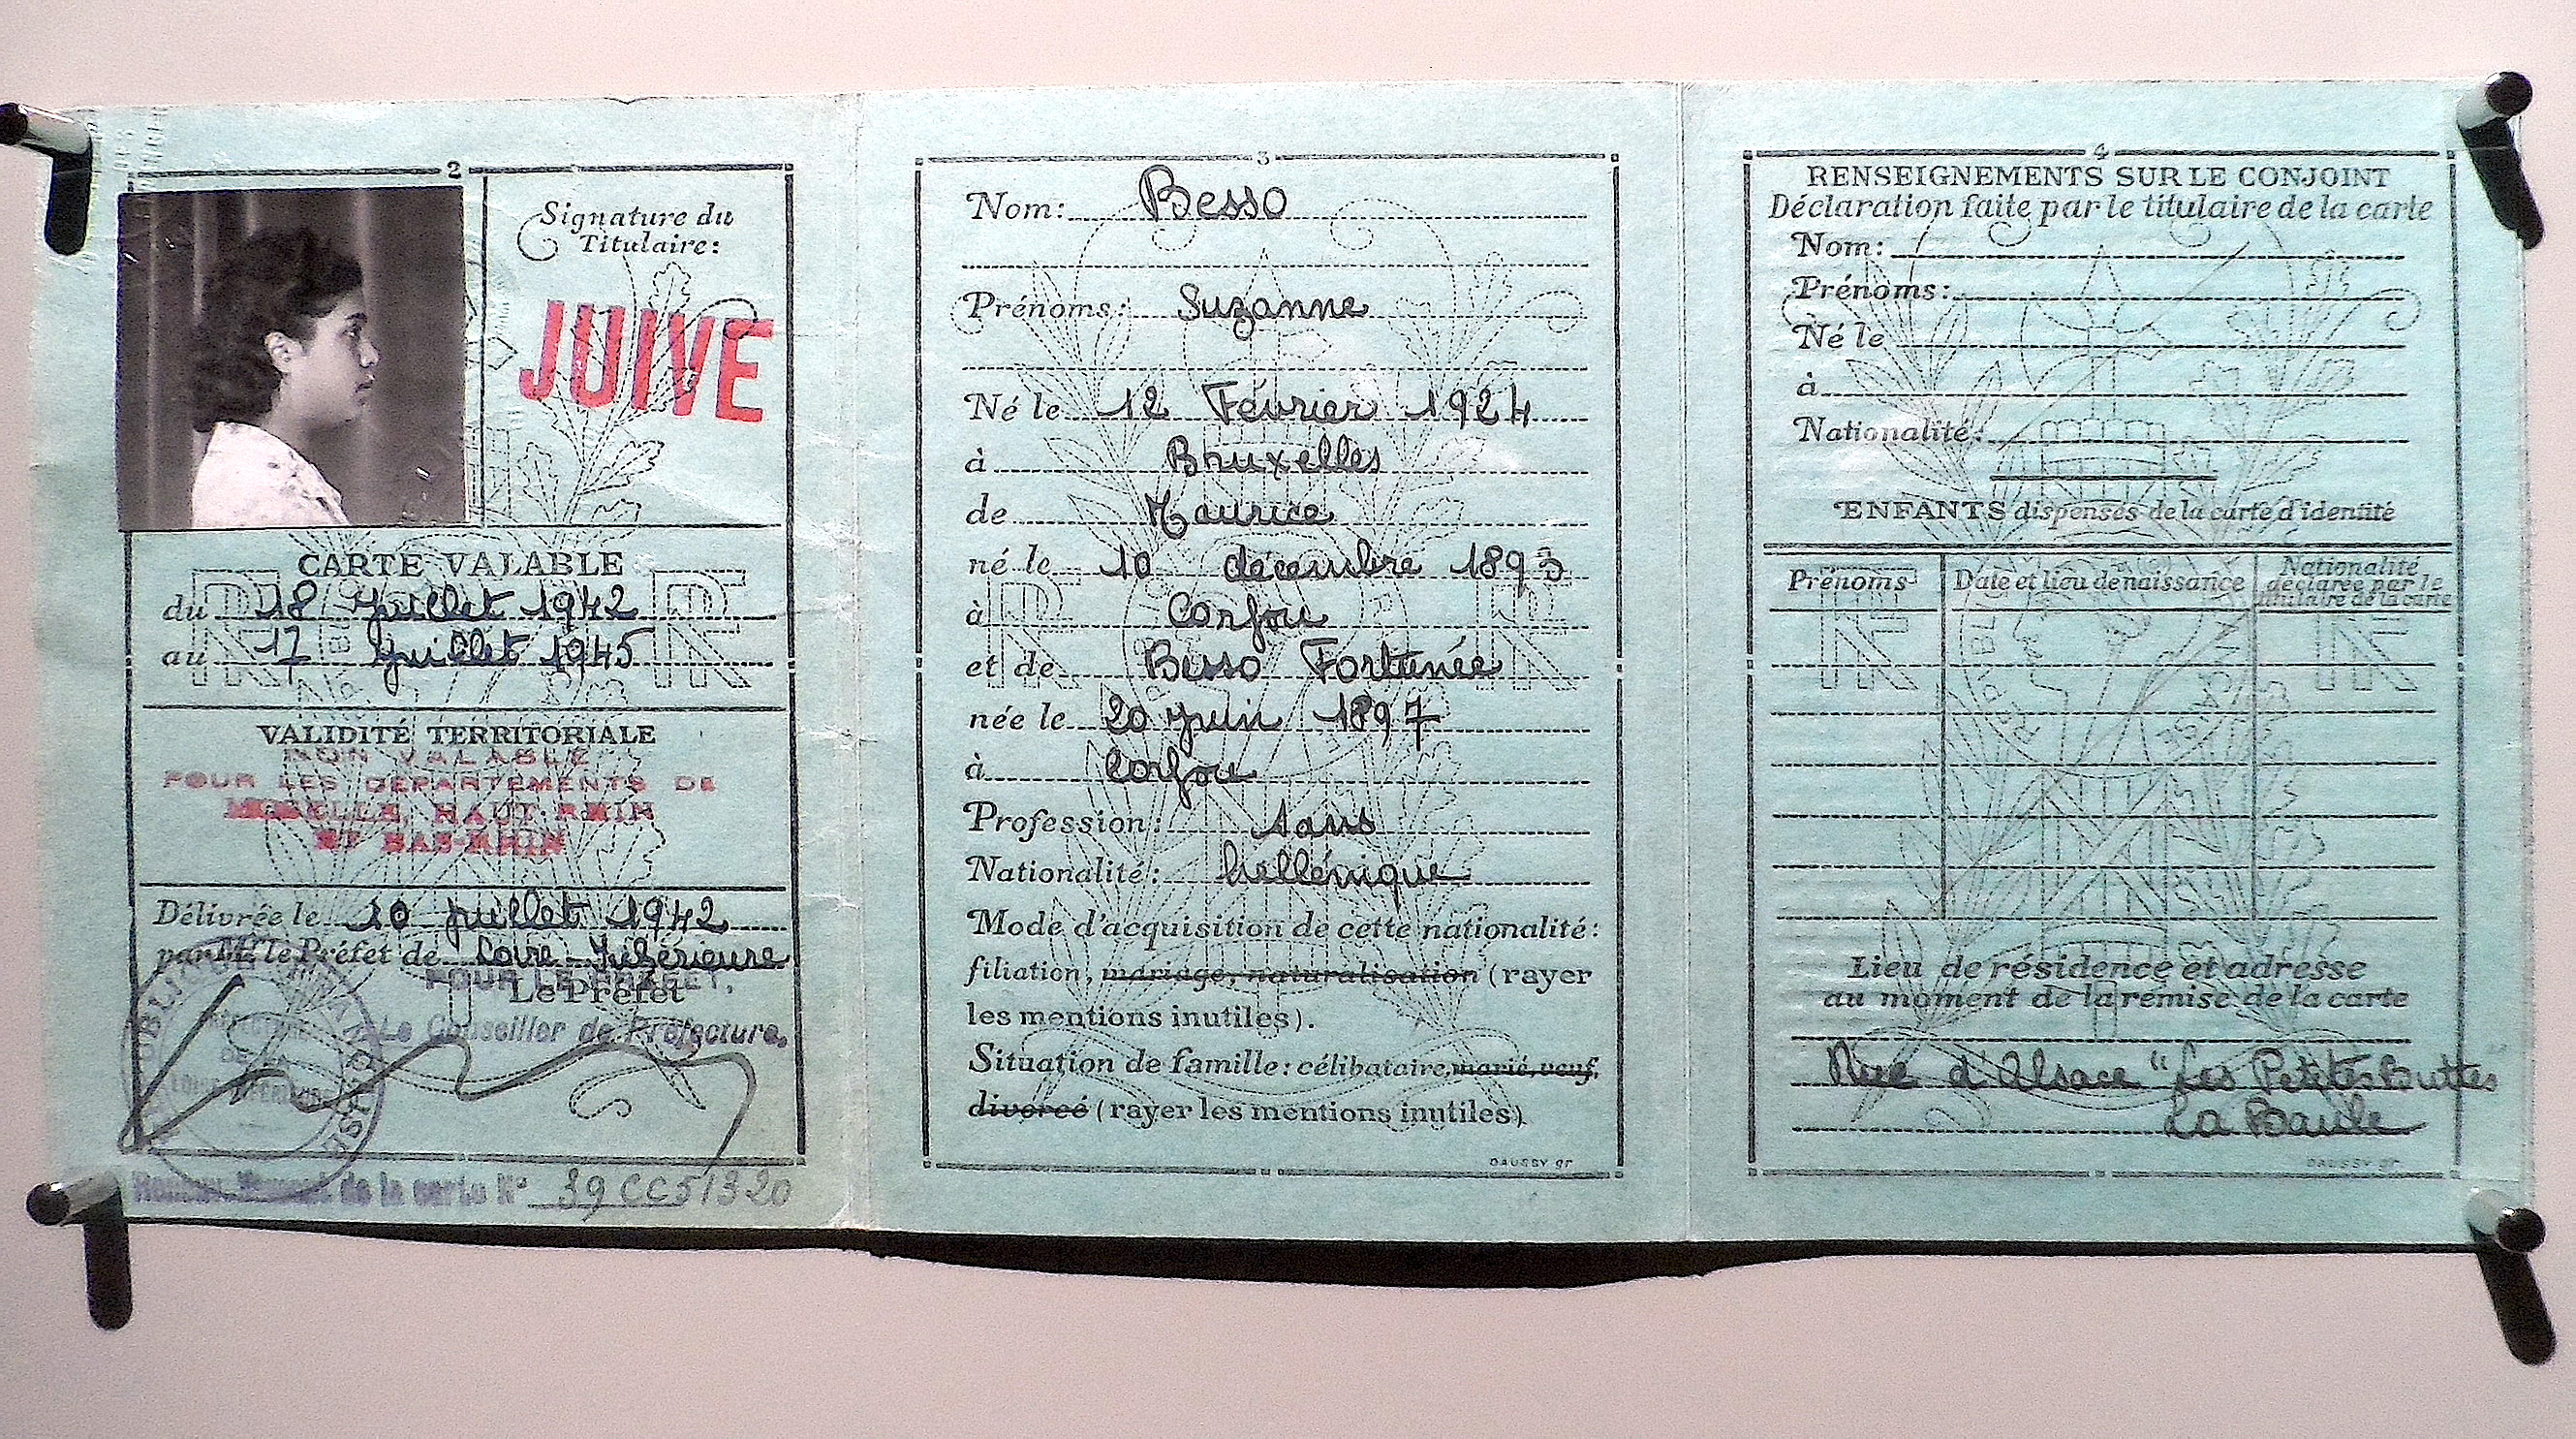 2
Signature du
Titulaire:
JUIVE
CARTE VALABLE
du 18 Juillet 1942
au 17 Juillet 1945
VALIDITÉ TERRITORIALE
NON VALABLE
POUR LES DEPARTEMENTS DE
MOSELLE, HAUT-RHIN
ET BAS-RHIN
Délivrée le 10 juillet 1942
par M. le Préfet de Loire-Inférieure
POUR LE PRÉFET,
Le Préfet
Le Conseiller de Préfecture,
de la carte N° 39CC51320
3
Nom: Besso
Prénoms: Suzanne
Né le 12 Février 1924
à Bruxelles
de Maurice
né le 10 décembre 1893
à Corfou
et de Besso Fortunée
née le 20 Juin 1897
à Corfou
Profession: sans
Nationalité: hellénique
Mode d'acquisition de cette nationalité:
filiation, mariage, naturalisation (rayer
les mentions inutiles).
Situation de famille: célibataire, marié, veuf,
divorcé (rayer les mentions inutiles)
DAUSSY gr
4
RENSEIGNEMENTS SUR LE CONJOINT
Déclaration faite par le titulaire de la carte
Nom:
Prénoms:
Né le
à
Nationalité:
ENFANTS dispensés de la carte d'identité
Prénoms
Date et lieu de naissance
Nationalité
déclarée par le
titulaire de la carte
Lieu de résidence et adresse
au moment de la remise de la carte
Rue d'Alsace "Les Petites Buttes
La Baule
DAUSSY gr